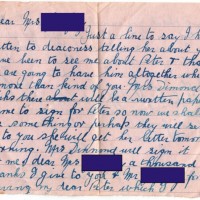 ear Mrs
Just a line to say I h
tten to deaconess telling her about yo
ve been to see me about Peter & tha
are going to have him altogether wh
more than kind of you. Mrs Dimond
nks there about will be a written pape
me to sign for so now we shall
something or perhaps they will se
to you she will get her letter tomorr
rning. Mrs Dimmond will sign it
me & dear Mrs a thousand
anks I give to you & Mr for
having my dear Peter which I